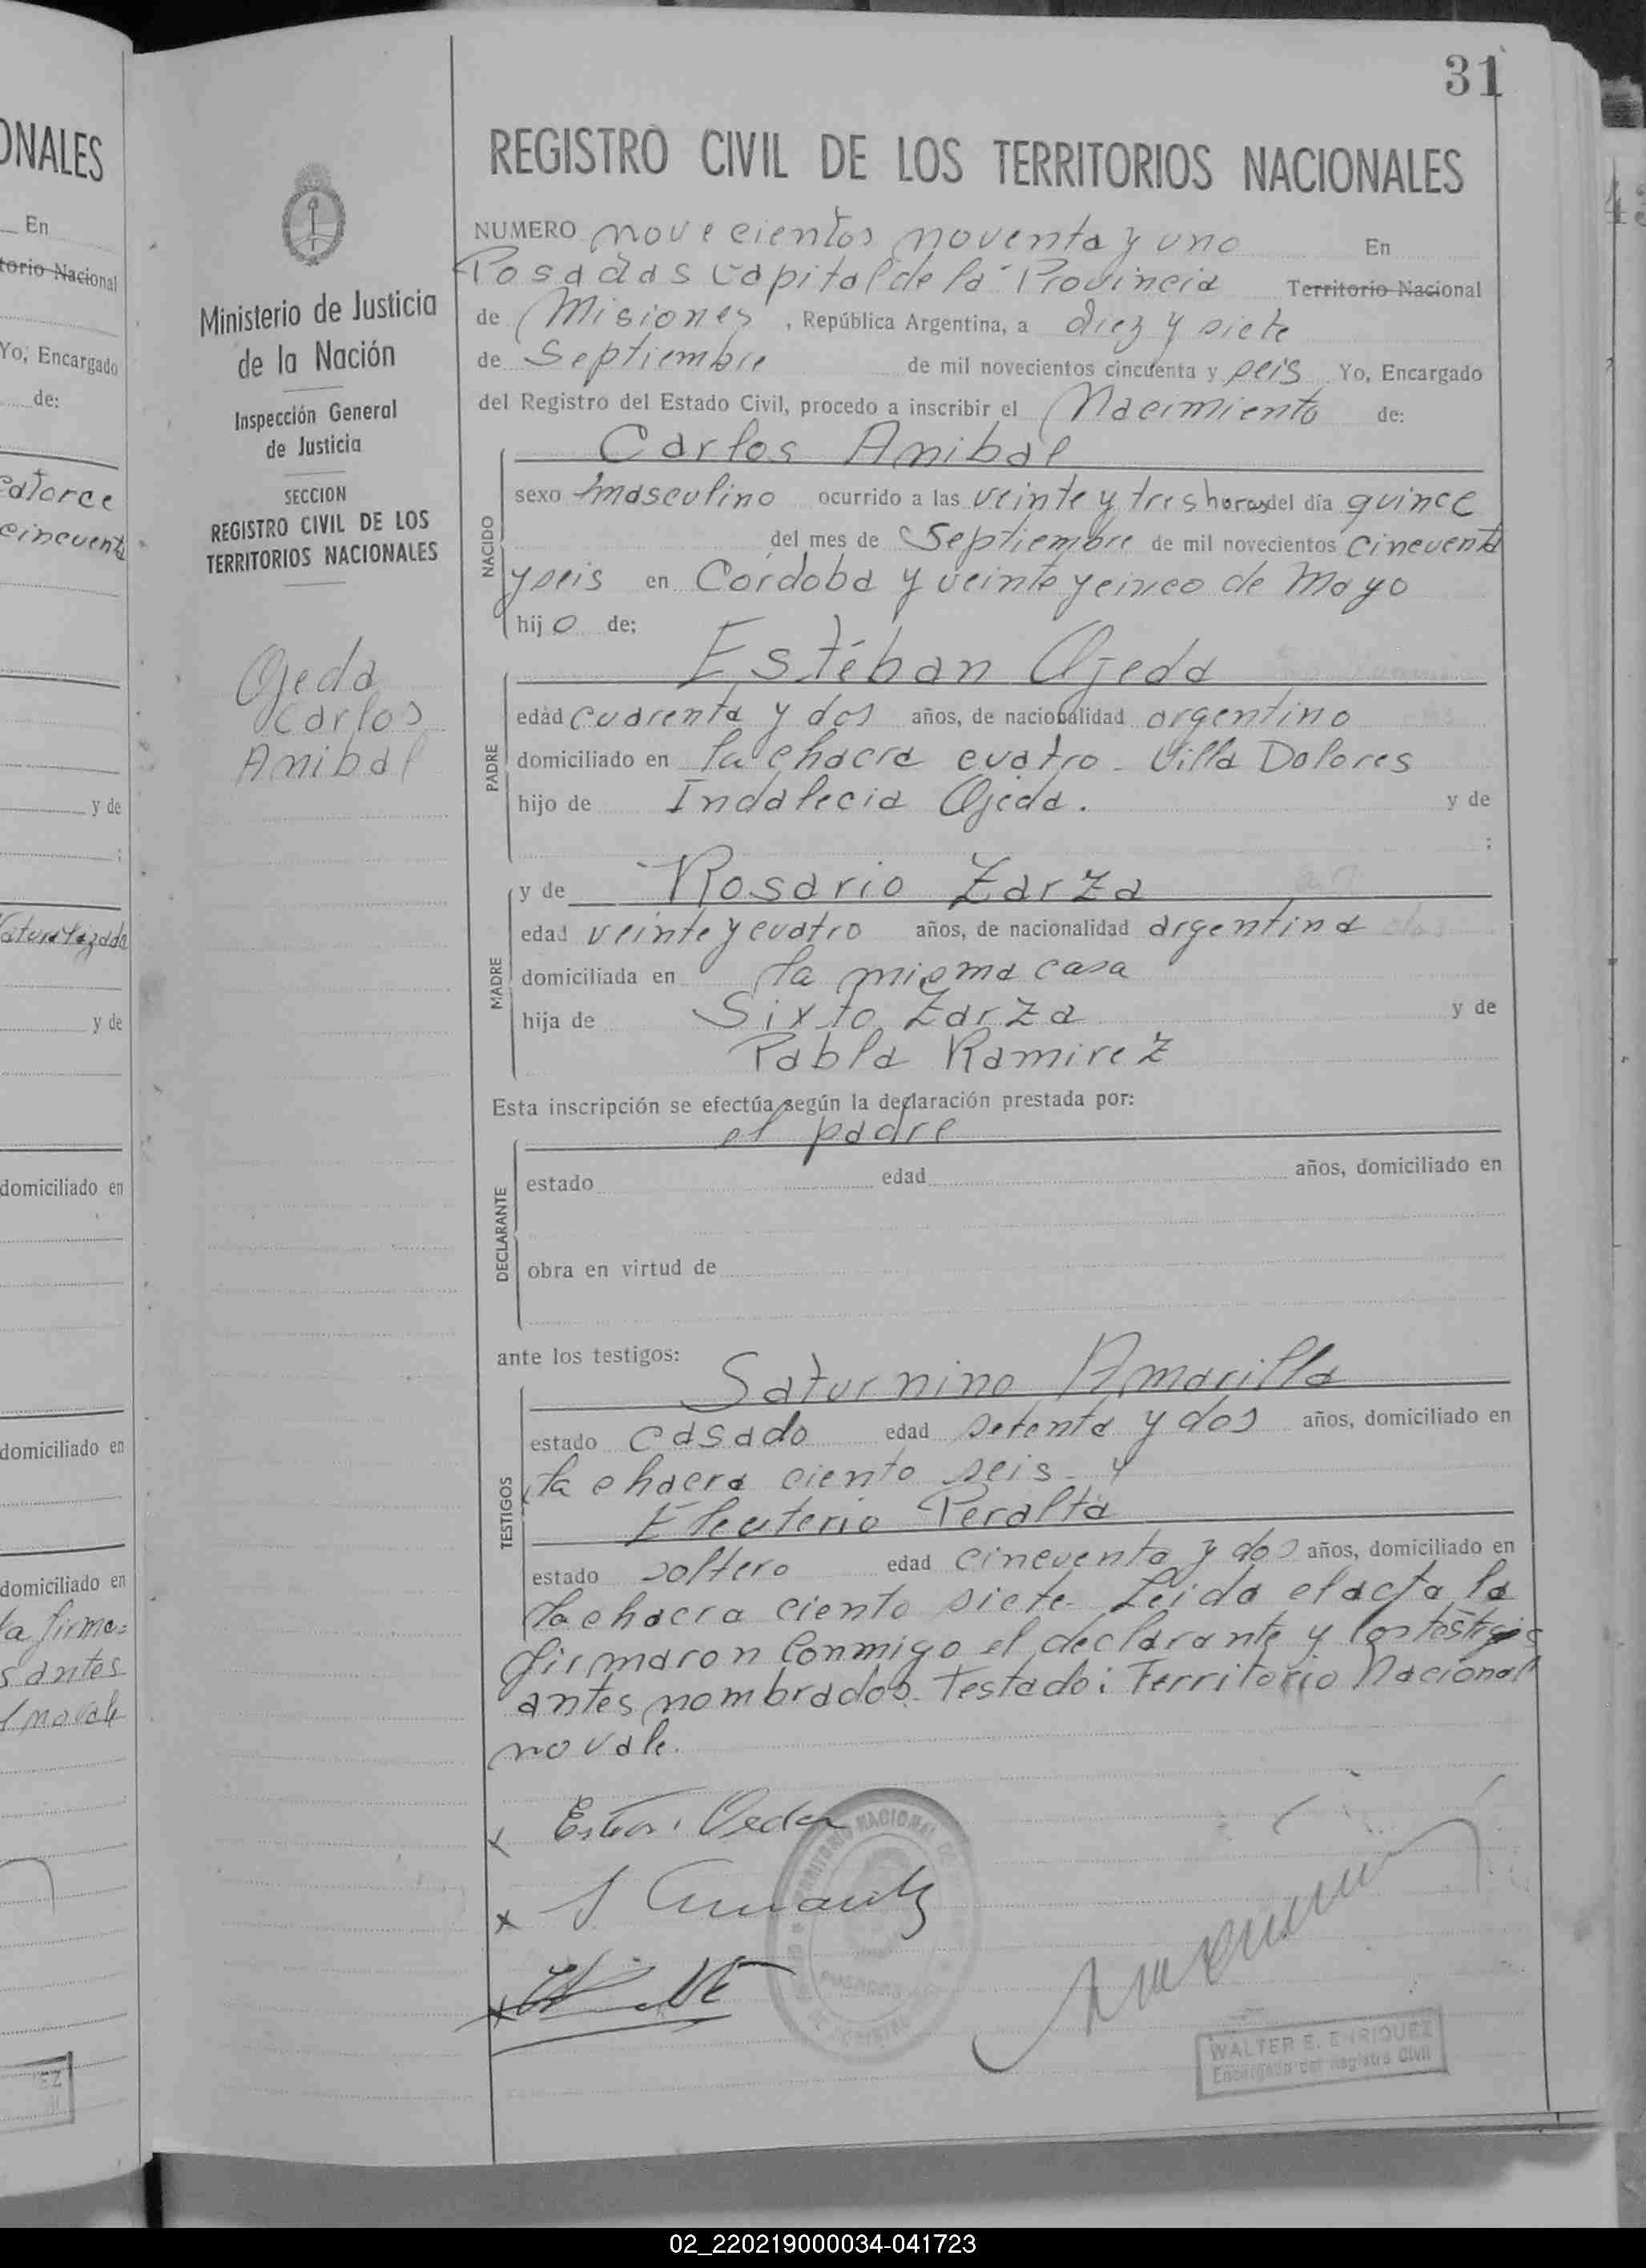 31
REGISTRO CIVIL DE LOS TERRITORIOS NACIONALES
NUMERO novecientos noventa y uno En
Posadas capital de la Provincia Territorio Nacional
de Misiones, República Argentina, a diez y siete
de Septiembre de mil novecientos cincuenta y seis Yo, Encargado
del Registro del Estado Civil, procedo a inscribir el Nacimiento de:
NACIDO
Carlos Anibal
sexo masculino ocurrido a las veinte y tres horas del día quince
del mes de Septiembre de mil novecientos cincuenta
y seis en Córdoba y veinte y cinco de Mayo
hijo de:
PADRE
Estéban Ojeda
edad cuarenta y dos años, de nacionalidad argentino
domiciliado en la chacra cuatro - Villa Dolores
hijo de Indalecia Ojeda. y de
;
MADRE
y de Rosario Zarza
edad veinte y cuatro años, de nacionalidad argentina
domiciliada en la misma casa
hija de Sixto Zarza y de
Pabla Ramirez
Esta inscripción se efectúa según la declaración prestada por:
DECLARANTE
el padre
estado edad años, domiciliado en
obra en virtud de
ante los testigos:
TESTIGOS
Saturnino Amarilla
estado casado edad setenta y dos años, domiciliado en
la chacra ciento seis - y
Eleuterio Peralta
estado soltero edad cincuenta y dos años, domiciliado en
la chacra ciento siete - Leida el acta la
firmaron conmigo el declarante y los testigos
antes nombrados - Testado: Territorio Nacional
no vale.
WALTER E. ENRIQUEZ
Encargado del Registro Civil
Ministerio de Justicia
de la Nación
Inspección General
de Justicia
SECCION
REGISTRO CIVIL DE LOS
TERRITORIOS NACIONALES
Ojeda
Carlos
Anibal
ONALES
En
torio Nacional
Yo, Encargado
de:
catorce
cincuenta
y de
;
naturalizada
y de
domiciliado en
domiciliado en
domiciliado en
la firma=
s antes
l no vale
EZ
02_220219000034-041723